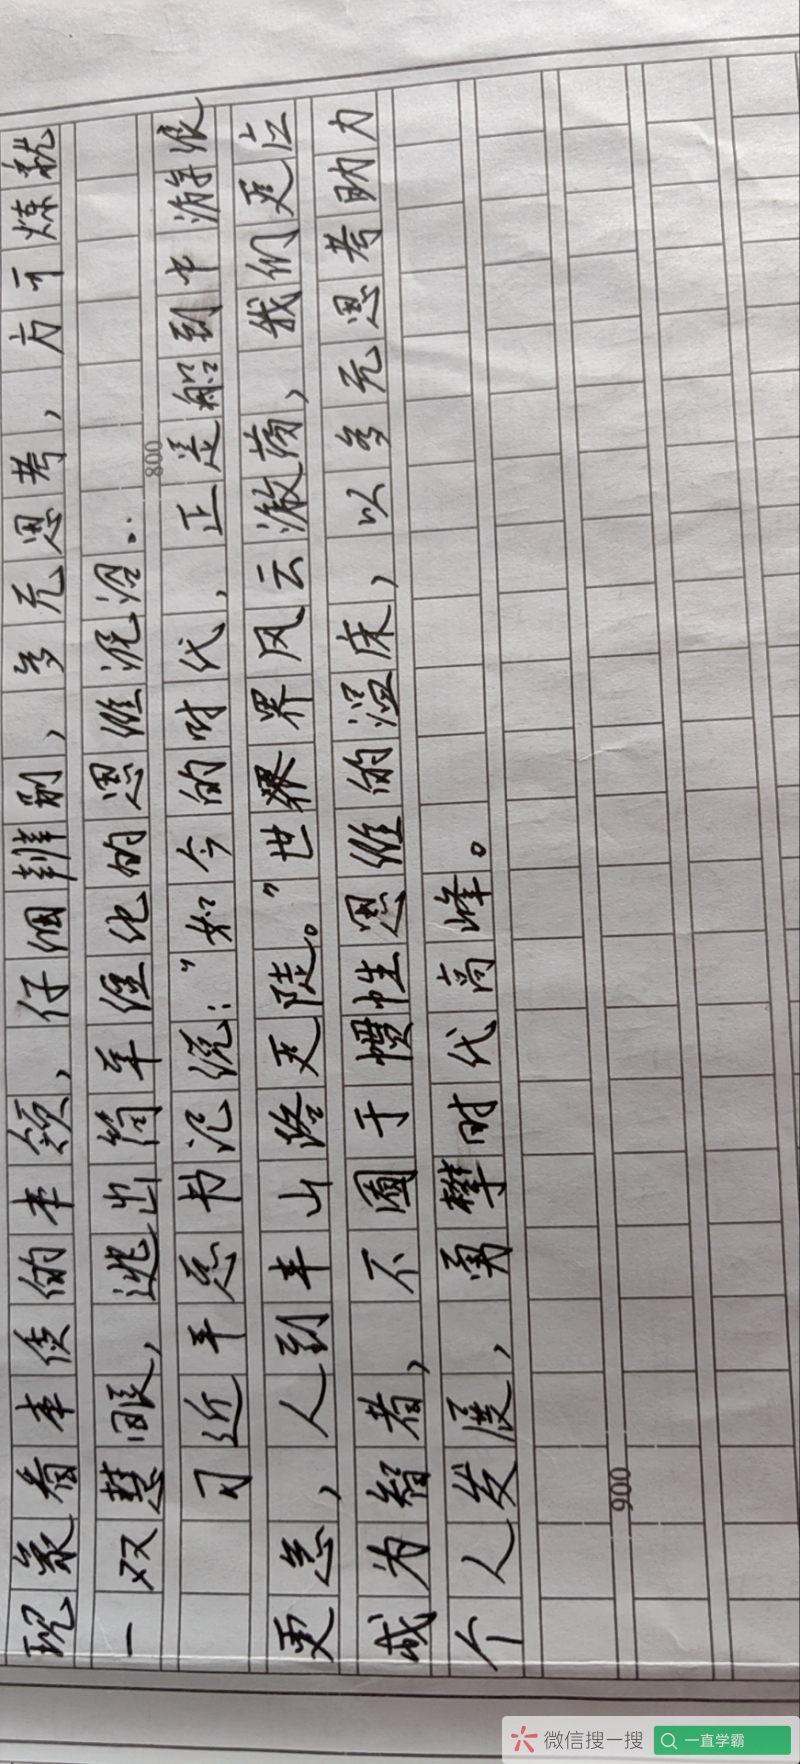 现象看本质的本领，仔细辨别，多元思考，方可炼就
一双慧眼，逃出简单准化的思维泥沼．
800
习近平总书记说："如今的时代，正是船到中游浪
更急，人到半山路更陡。"世界界风云激荡，我们更应
成为智者，不囿于惯性思维的温床，以多元思考助力
个人发展，勇攀时代高峰。
900
微信搜一搜
一直学霸